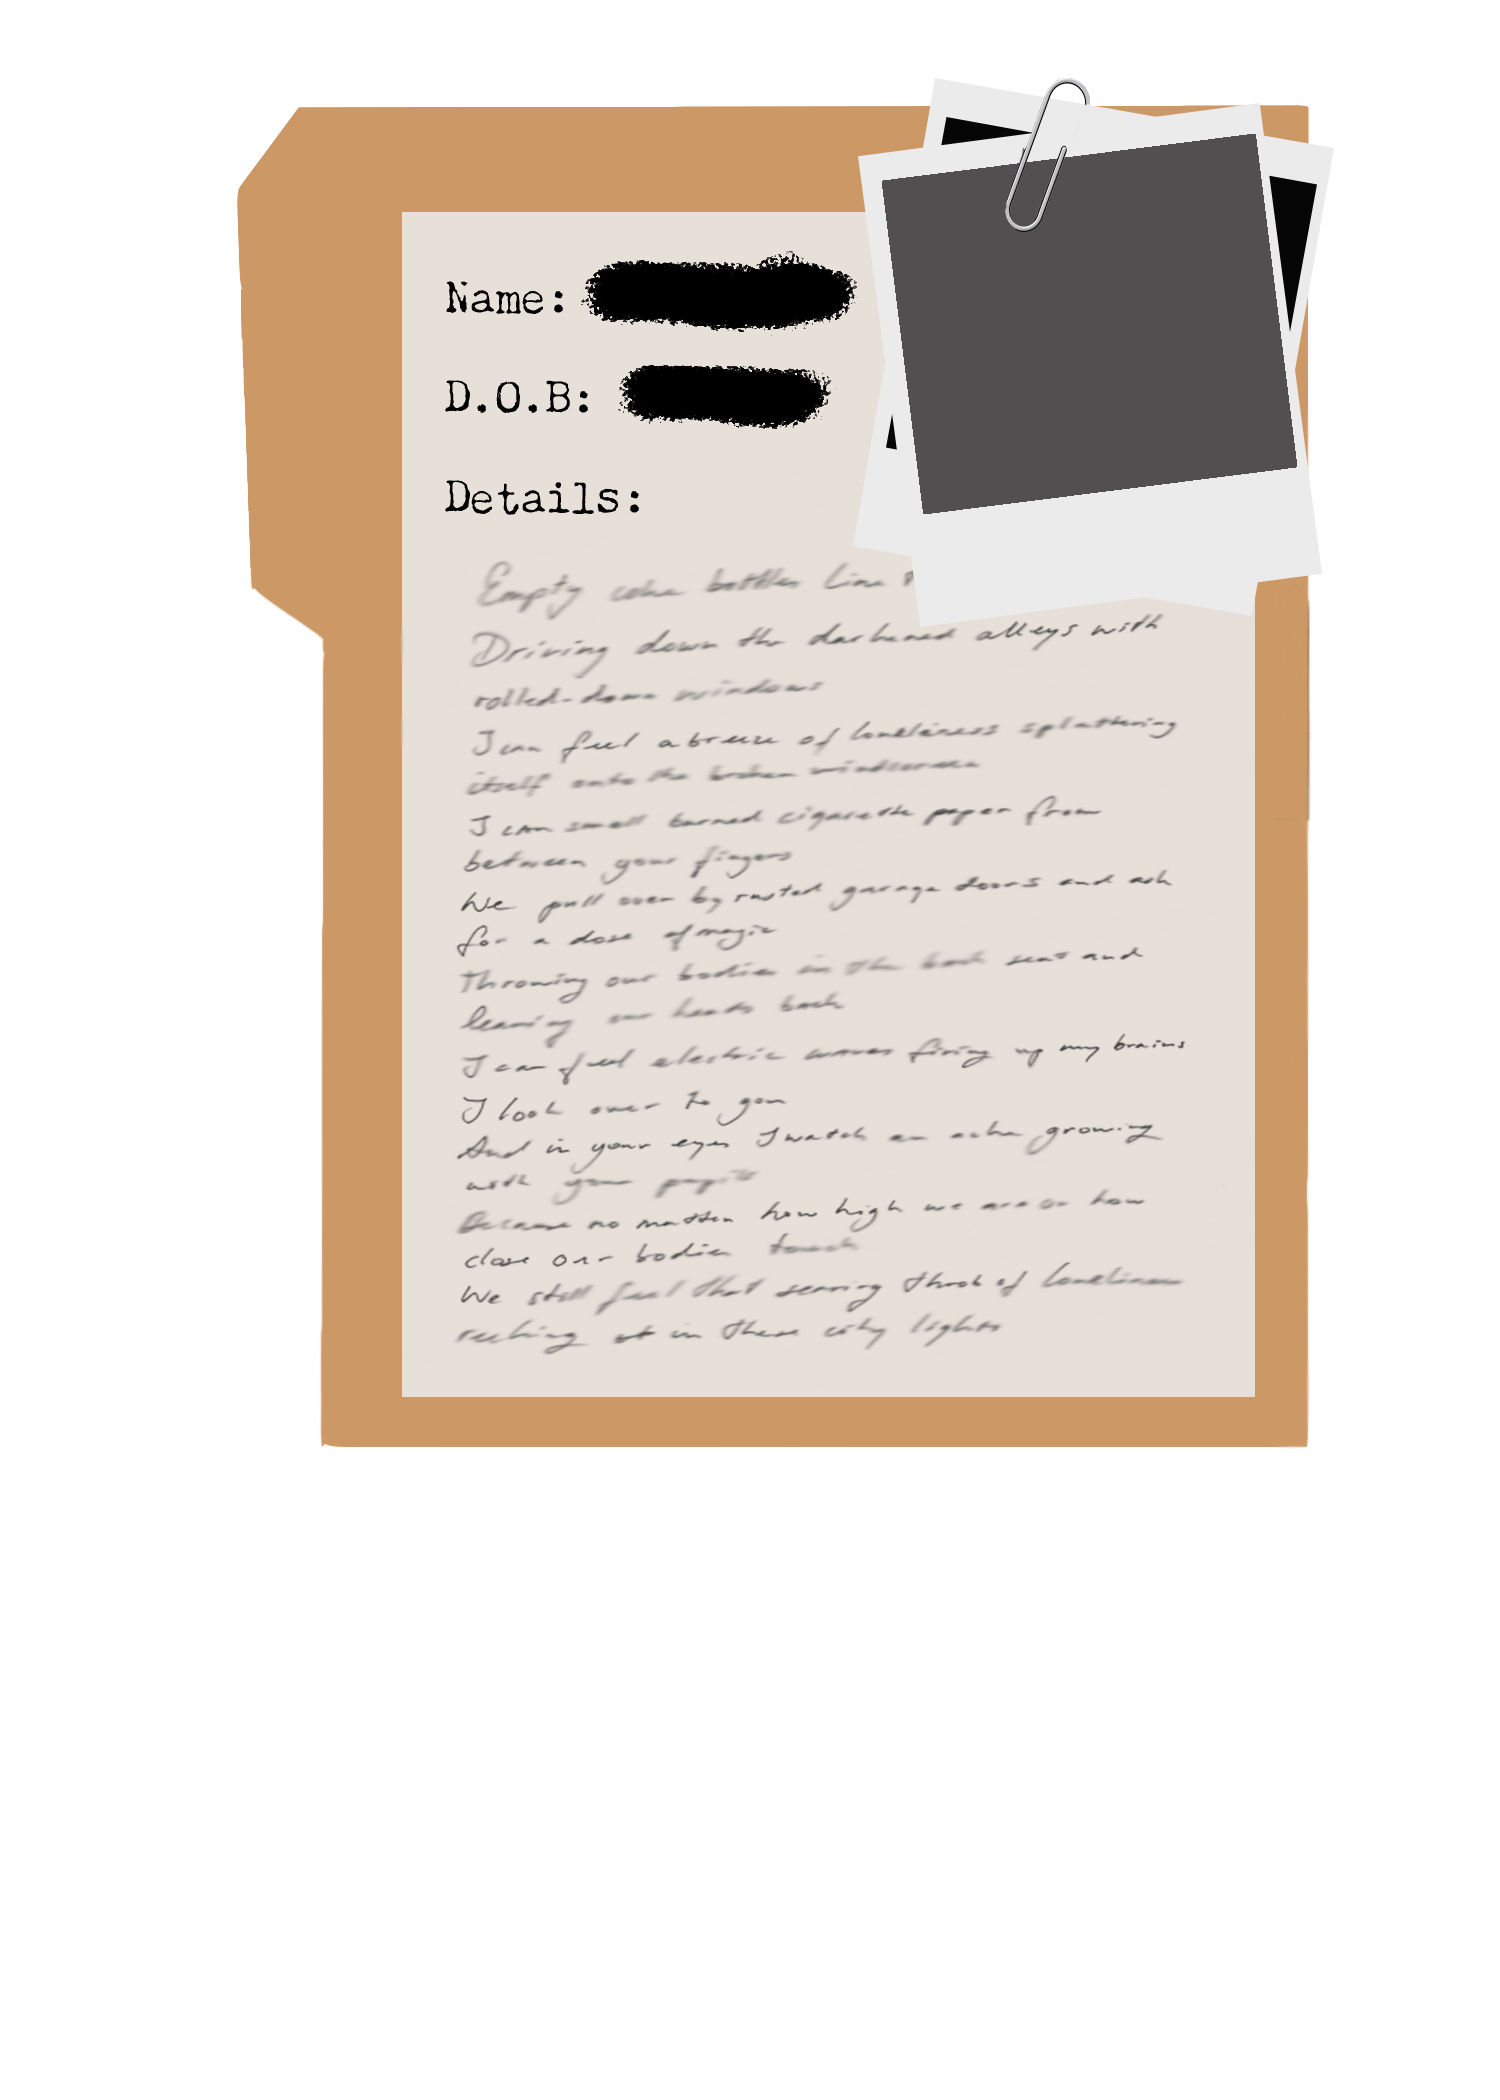 Name:
D.O.B:
Details:
Empty coke bottles line
Driving down the darkened alleys with
rolled-down windows
I can feel a breeze of loneliness splattering
itself onto the broken windscreen
I can smell burned cigarette paper from
between your fingers
We pull over by rusted garage doors and ask
for a dose of magic
Throwing our bodies in the back seat and
leaning our heads back
I can feel electric waves firing up my brains
I look over to you
And in your eyes I watch an ache growing
with your pupils
Because no matter how high we are or how
close our bodies touch
We still feel that searing throb of loneliness
reeking in these city lights